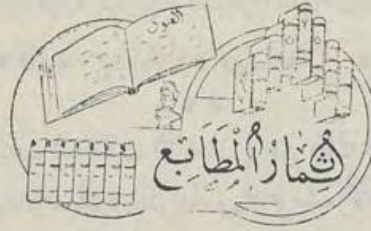 الفنون
ثِمَارُ الْمَطَابِعِ